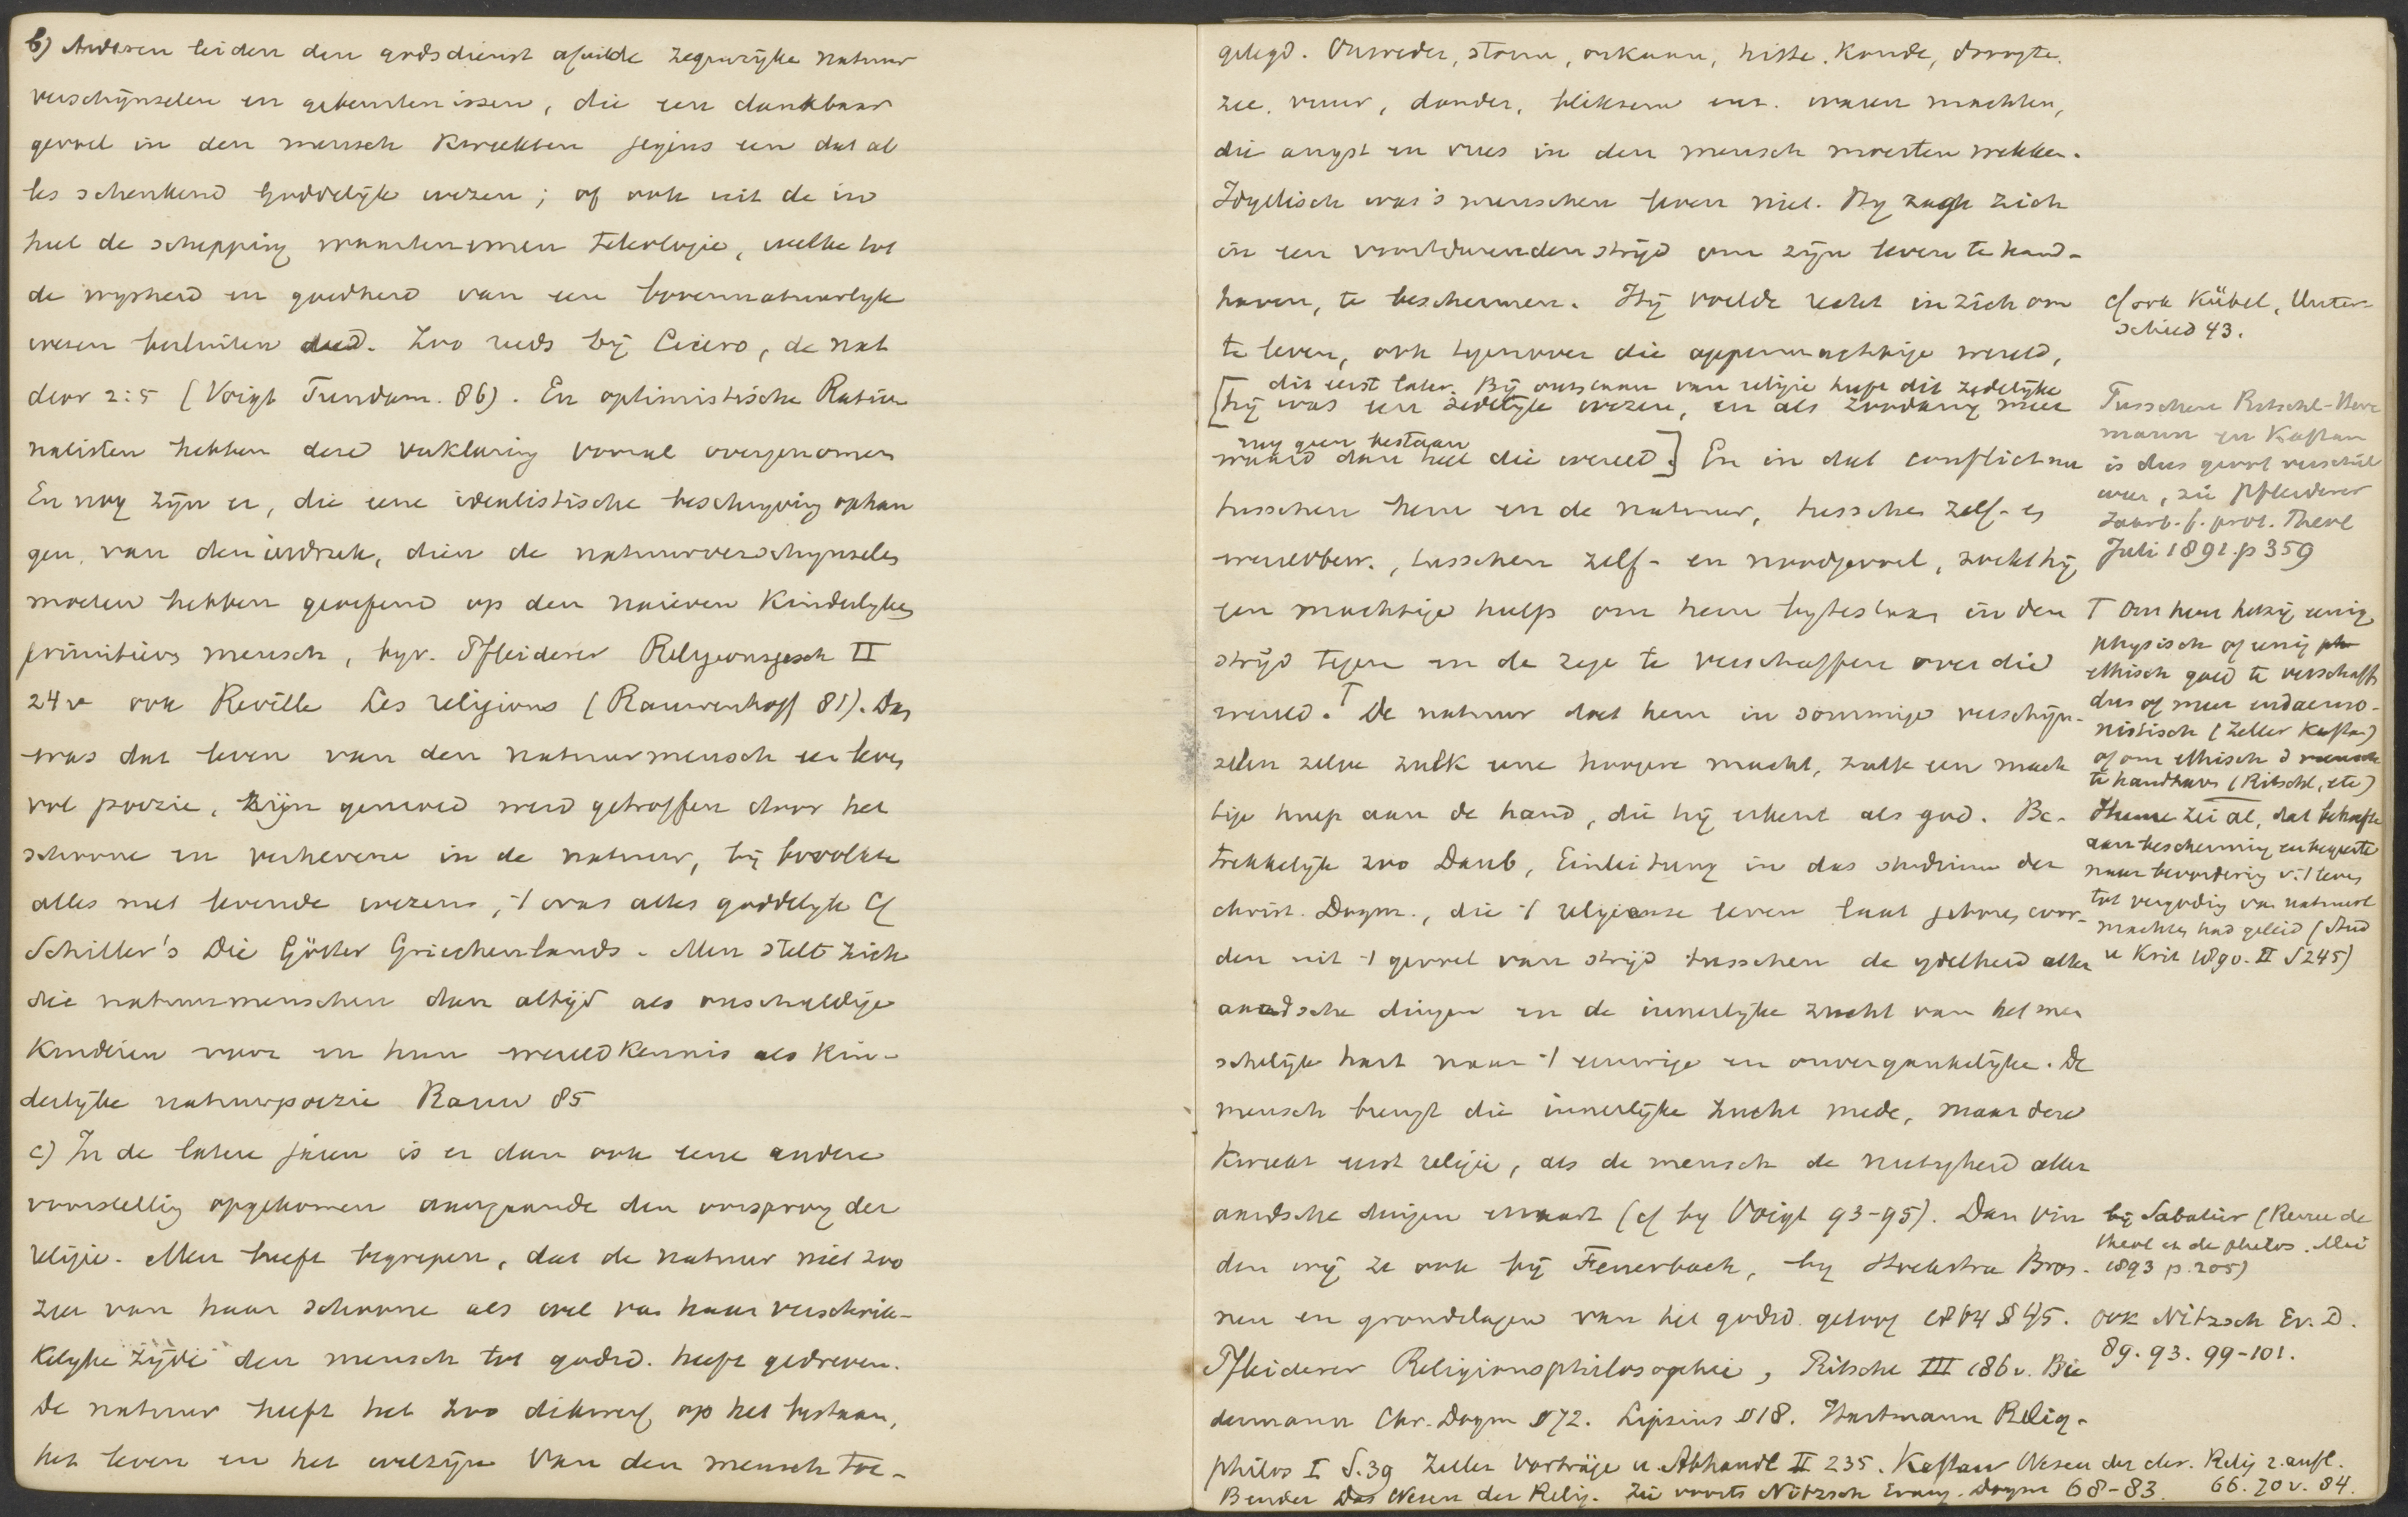 b) Anderen leiden den godsdienst af uit de zegenrijke natuur
verschijnselen en gebeurtenissen, die een dankbaar
gevoel in den mensch kweekten jegens een dat al
les schenkend Goddelijk wezen; of ook uit de in
heel de schepping waartenemen teleologie, welke tot
de wysheid en goedheid van een bovennatuurlyk
wezen besluiten deed. Zoo reeds bij Cicero, de nat
deor 2:5 (Voigt Fundam. 86). En optimistische Ratio
nalisten hebben deze verklaring vooral overgenomen
En nog zijn er, die eene idealistische beschryving ophan
gen van den indruk, dien de natuurverschynselen
moeten hebben geoefend op den naieven kinderlyken
primitieven mensch, byv. Pfleiderer Religionsgesch II
24v ook Reville Les religions (Rauwenhoff 81). Dan
was dat leven van den natuurmensch een leven
vol poezie, zijn gemoed werd getroffen door het
schoone en verhevene in de natuur, hij bevolkte
alles met levende wezens, 't was alles goddelyk Cf
Schiller's Die Götter Griechenlands. Men stelt zich
die natuurmenschen dan altijd als onschuldige
kinderen voor en hun wereldkennis als kin-
derlijke natuurpoezie Rauw 85
c) In de latere jaren is er dan ook eene andere
voorstelling opgekomen aangaande den oorsprong der
religie. Men heeft begrepen, dat de natuur niet zoo
zeer van haar schoone als wel van haar verschrik-
kelyke zijde den mensch tot godsd. heeft gedreven.
De natuur heeft het zoo dikwerf op het bestaan,
het leven en het welzijn van den mensch toe-
gelegd. Onweder, storm, orkaan, hitte, koude, droogte,
zee, vuur, donder, bliksem enz. waren machten,
die angst en vrees in den mensch moesten wekken.
Idyllisch was 's menschen leven niet. Hy zag zich
in een voortdurenden strijd om zijn leven te hand-
haven, te beschermen. Hij voelde recht in zich om
te leven, ook tegenover die oppermachtige wereld,
dit eerst later. Bij ontstaan van religie heeft dit zedelijke
[hij was een zedelijk wezen, en als zoodanig meer
nog geen bestaan
waard dan heel die wereld.] En in dat conflict nu
tusschen hem en de natuur, tusschen zelf- en
wereldbew., tusschen zelf- en noodgevoel, zoekt hij
een machtige hulp om hem bytestaan in den
strijd tegen en de zege te verschaffen over die
wereld.⊤ De natuur doet hem in sommige verschijn-
selen zelve zulk eene hoogere macht, zulk een mach
tige hulp aan de hand, die hij erkent als god. Be-
trekkelijk zoo Daub, Einleitung in das studium der
christ. Dogm., die 't religieuse leven laat geboren wor-
den uit 't gevoel van strijd tusschen de ydelheid aller
aardsche dingen en de innerlijke zucht van het men
schelijk hart naar 't eeuwige en onvergankelijke. De
mensch brengt die innerlijke zucht mede, maar deze
kweekt eerst religie, als de mensch de nietigheid aller
aardsche dingen ervaart (cf by Voigt 93-95). Dan vin
den wij ze ook bij Feuerbach, by Hoekstra Bron-
nen en grondslagen van het godsd. geloof 1864 § 45.
Pfleiderer Religionsphilosophie, Ritschl III 186v. Bie
dermann Chr. Dogm § 72. Lipsius § 18. Hartmann Relig-
philos I S. 39 Zeller Vorträge u. Abhandl II 235. Kaftan Wesen der chr. Relig 2. aufl.
Bender Das Wesen der Relig. Zie voorts Nitzsch Evang. Dogm 68-83. 66. 70v. 84.
cf ook Kübel, Unter-
schied 43.
Tusschen Ritschl-Herr
mann en Kaftan
is dus groot verschil
over, zie Pfleiderer
Jaarb. f. prot. Theol
Juli 1891. p 359
⊤ Om hem hetzij eenig
physisch of eenig ph
ethisch goed te verschaffen
dus of meer eudaemo-
nistisch (Zeller Kaftan)
of om ethisch d mensch
te handhaven (Ritschl, etc)
Hume zei al, dat behoefte
aan bescherming en begeerte
naar bevordering v. 't leven
tot vergoding van natuur
machten had geleid (Stud
u Krit 1890. II S 245)
bij Sabatier (Revue de
theol et de philos. Mei
1893 p. 205)
ook Nitzsch Ev. D.
89. 93. 99-101.